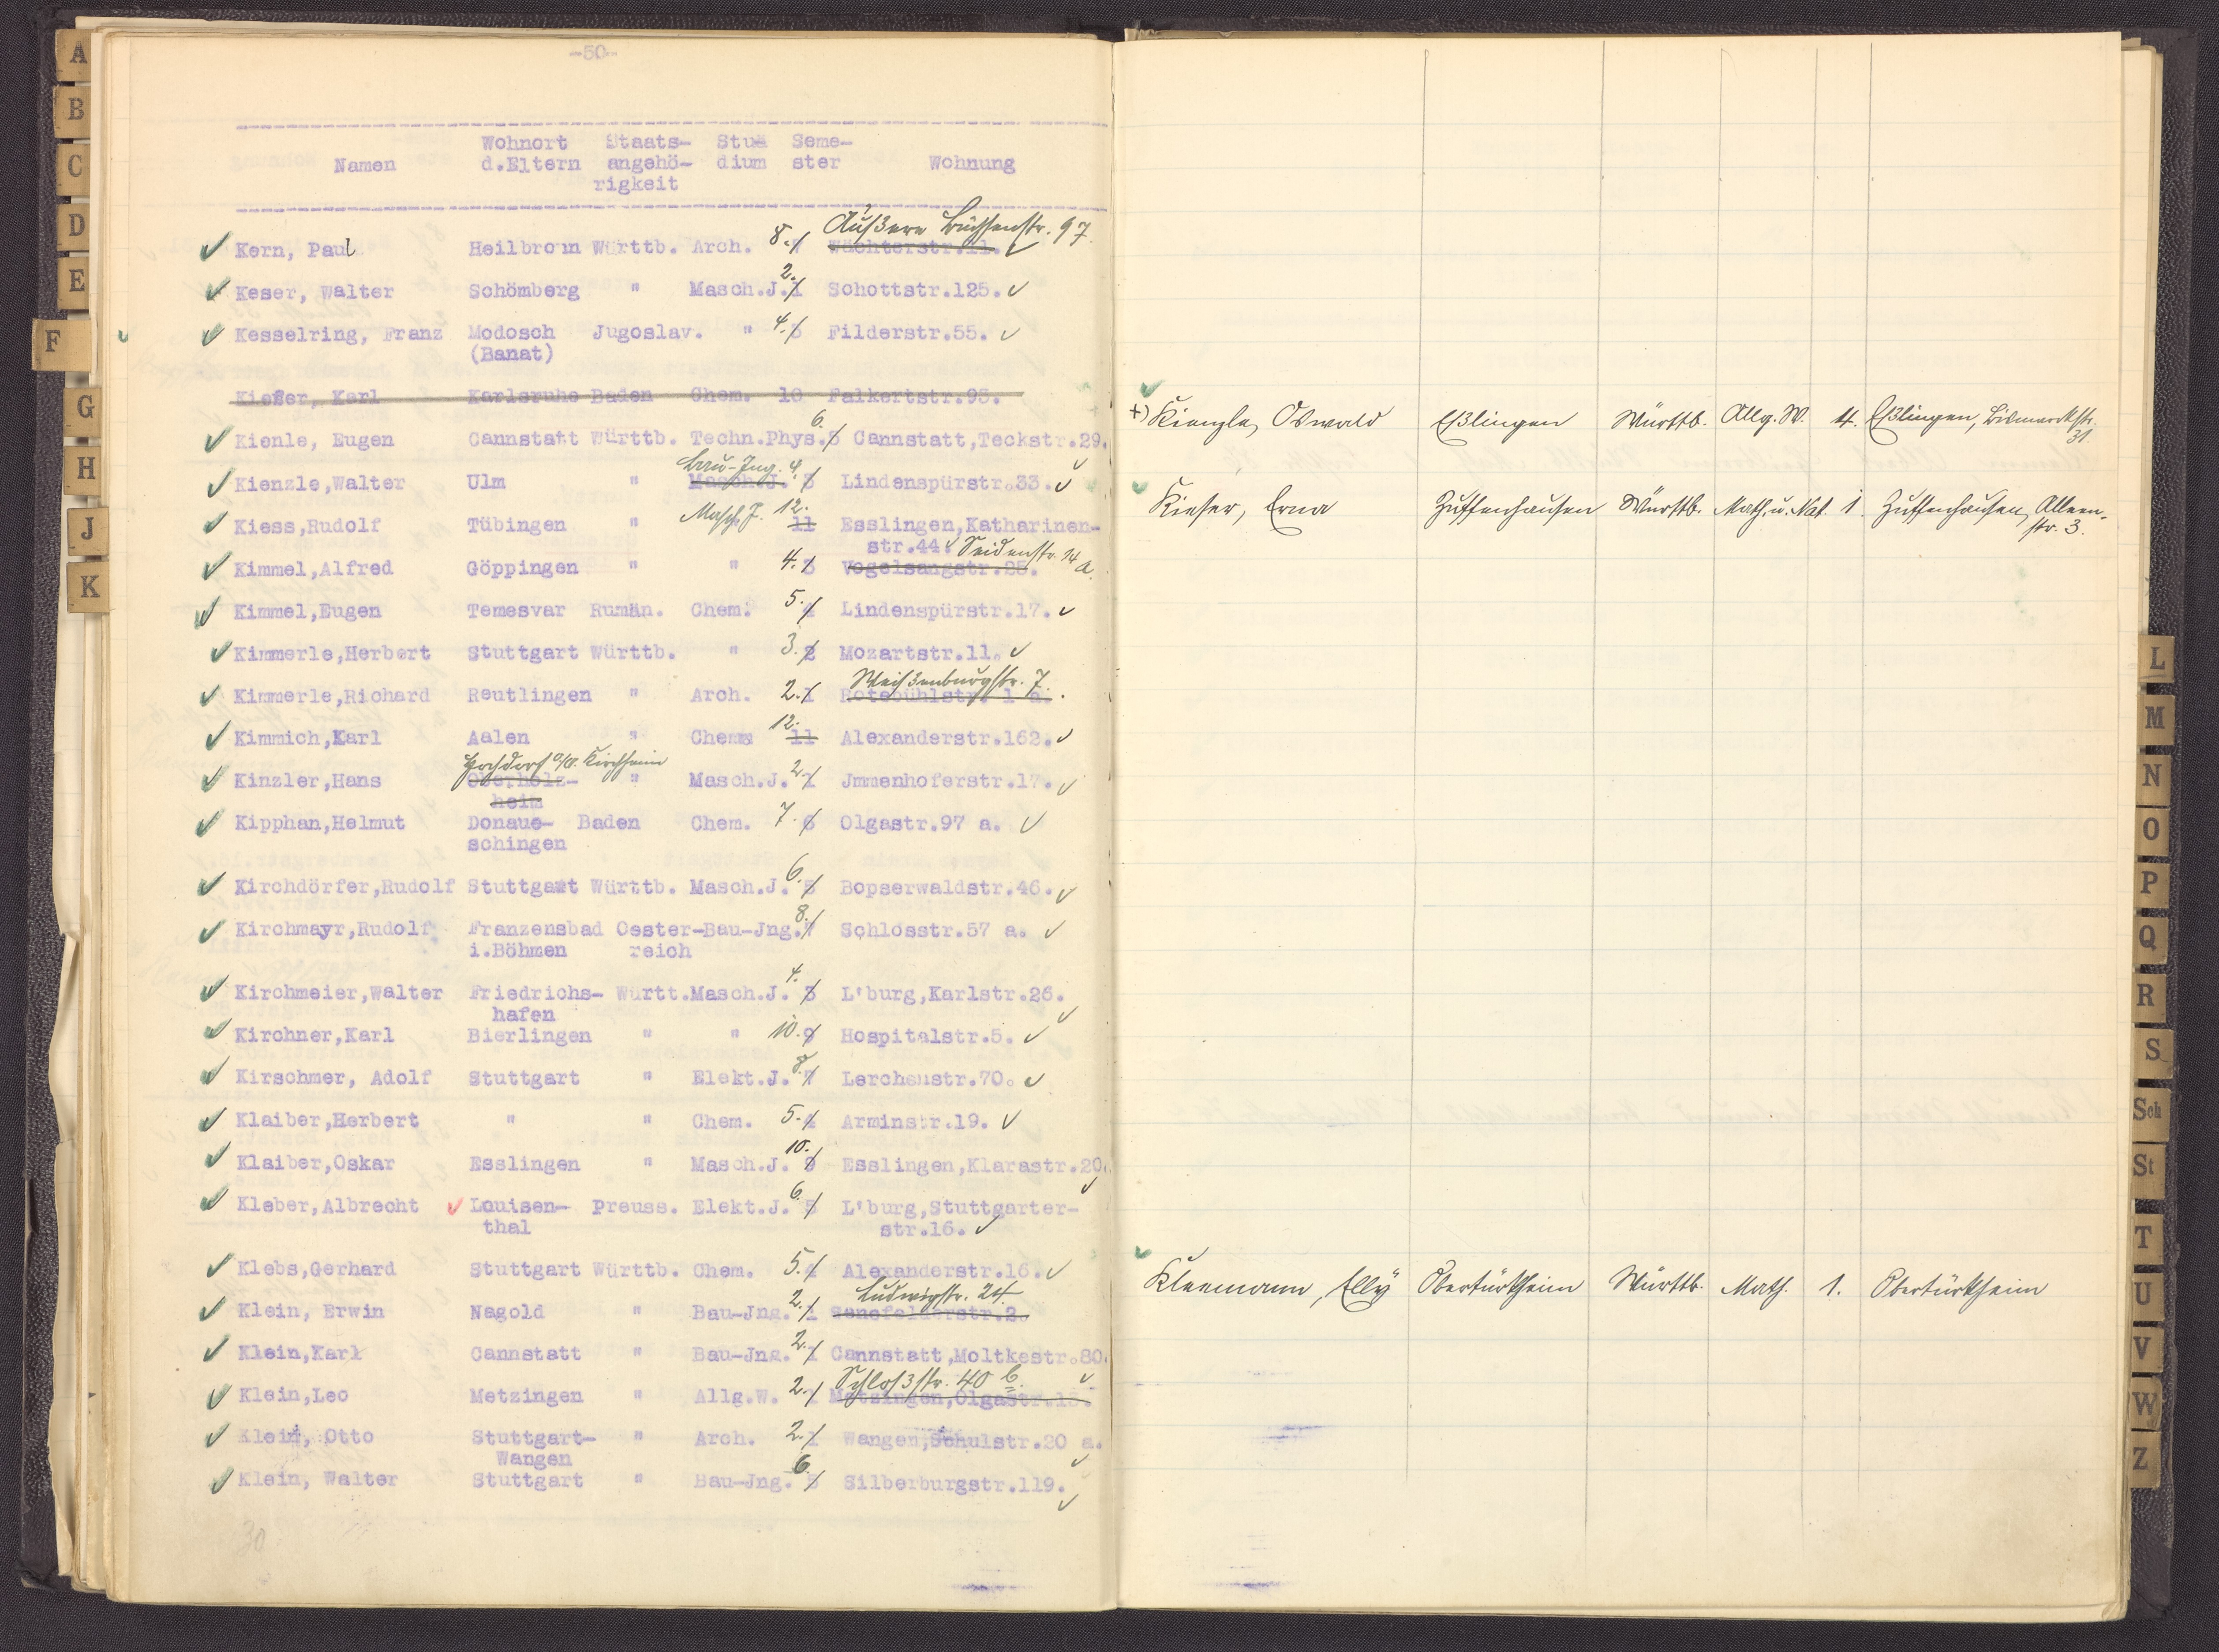 -50-
Namen Wohnort d.Eltern Staats-angehö-rigkeit Stu dium Seme-ster Wohnung
Äußere Büchsenstr. 97.
Kern, Paul Heilbronn Württb. Arch. 8. 7 Wächterstr.11.
Keser, Walter Schömberg " Masch.J. 2. 1 Schottstr.125.
Kesselring, Franz Modosch Jugoslav. " 4. 3 Filderstr.55.
(Banat)
Kiefer, Karl Karlsruhe Baden Chem. 10 Falkertstr.93.
Kienle, Eugen Cannstatt Württb. Techn.Phys. 6. 5 Cannstatt,Teckstr.29.
Bau-Ing. 4.
Kienzle,Walter Ulm " Masch.J. 3 Lindenspürstr.33.
Masch.J. 12.
Kiess,Rudolf Tübingen " 11 Esslingen,Katharinen-
str.44. Seidenstr. 14 a.
Kimmel,Alfred Göppingen " " 4. 3 Vogelsangstr.25.
Kimmel,Eugen Temesvar Rumän. Chem. 5. 4 Lindenspürstr.17.
Kimmerle,Herbert Stuttgart Württb. " 3. 2 Mozartstr.11.
Weißenburgstr. 7.
Kimmerle,Richard Reutlingen " Arch. 2. 1 Rotebühlstr. 1 a.
Kimmich,Karl Aalen " Chem. 12. 11 Alexanderstr.162.
Hochdorf O/A. Kirchheim
Kinzler,Hans Oberholz- " Masch.J. 2. 1 Jmmenhoferstr.17.
heim
Kipphan,Helmut Donaue- Baden Chem. 7. 6 Olgastr.97 a.
schingen
Kirchdörfer,Rudolf Stuttgart Württb. Masch.J. 6. 5 Bopserwaldstr.46.
Kirchmayr,Rudolf Franzensbad Oester-Bau-Jng. 8. 7 Schlosstr.57 a.
i.Böhmen reich
Kirchmeier,Walter Friedrichs- Württ.Masch.J. 4. 3 L'burg,Karlstr.26.
hafen
Kirchner,Karl Bierlingen " " 10. 9 Hospitalstr.5.
Kirschmer, Adolf Stuttgart " Elekt.J. 8. 7 Lerchenstr.70.
Klaiber,Herbert " " Chem. 5. 4 Arminstr.19.
Klaiber,Oskar Esslingen " Masch.J. 10. 9 Esslingen,Klarastr.20.
Kleber,Albrecht Louisen- Preuss. Elekt.J. 6. 5 L'burg,Stuttgarter-
thal str.16.
Klebs,Gerhard Stuttgart Württb. Chem. 5. 4 Alexanderstr.16.
Ludwigstr. 24.
Klein, Erwin Nagold " Bau-Jng. 2. 1 Senefelderstr.2.
Klein,Karl Cannstatt " Bau-Jng. 2. 1 Cannstatt,Moltkestr.80.
Schloßstr. 40 b.
Klein,Leo Metzingen " Allg.W. 2. 1 Metzingen,Olgastr.
Klein, Otto Stuttgart- " Arch. 2. 1 Wangen,Schulstr.20 a.
Wangen
Klein, Walter Stuttgart " Bau-Jng. 6. 5 Silberburgstr.119.
30
+) Kienzle, Oswald Eßlingen Württb. Allg. W. 4. Eßlingen, Bismarckstr.
31.
Kieser, Erna Zuffenhausen Württb. Math. u. Nat. 1. Zuffenhausen, Alleen-
str. 3.
Kleemann, Elly Obertürkheim Württb. Math. 1. Obertürkheim
A
B
C
D
E
F
G
H
J
K
L
M
N
O
P
Q
R
S
Sch
St
T
U
V
W
Z